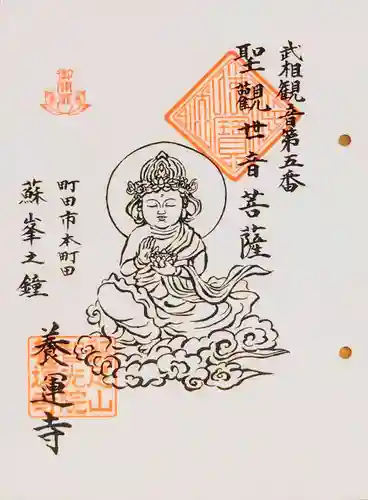 武相観音第五番
聖観世音菩薩
町田市本町田
蘇峯之鐘
養運寺